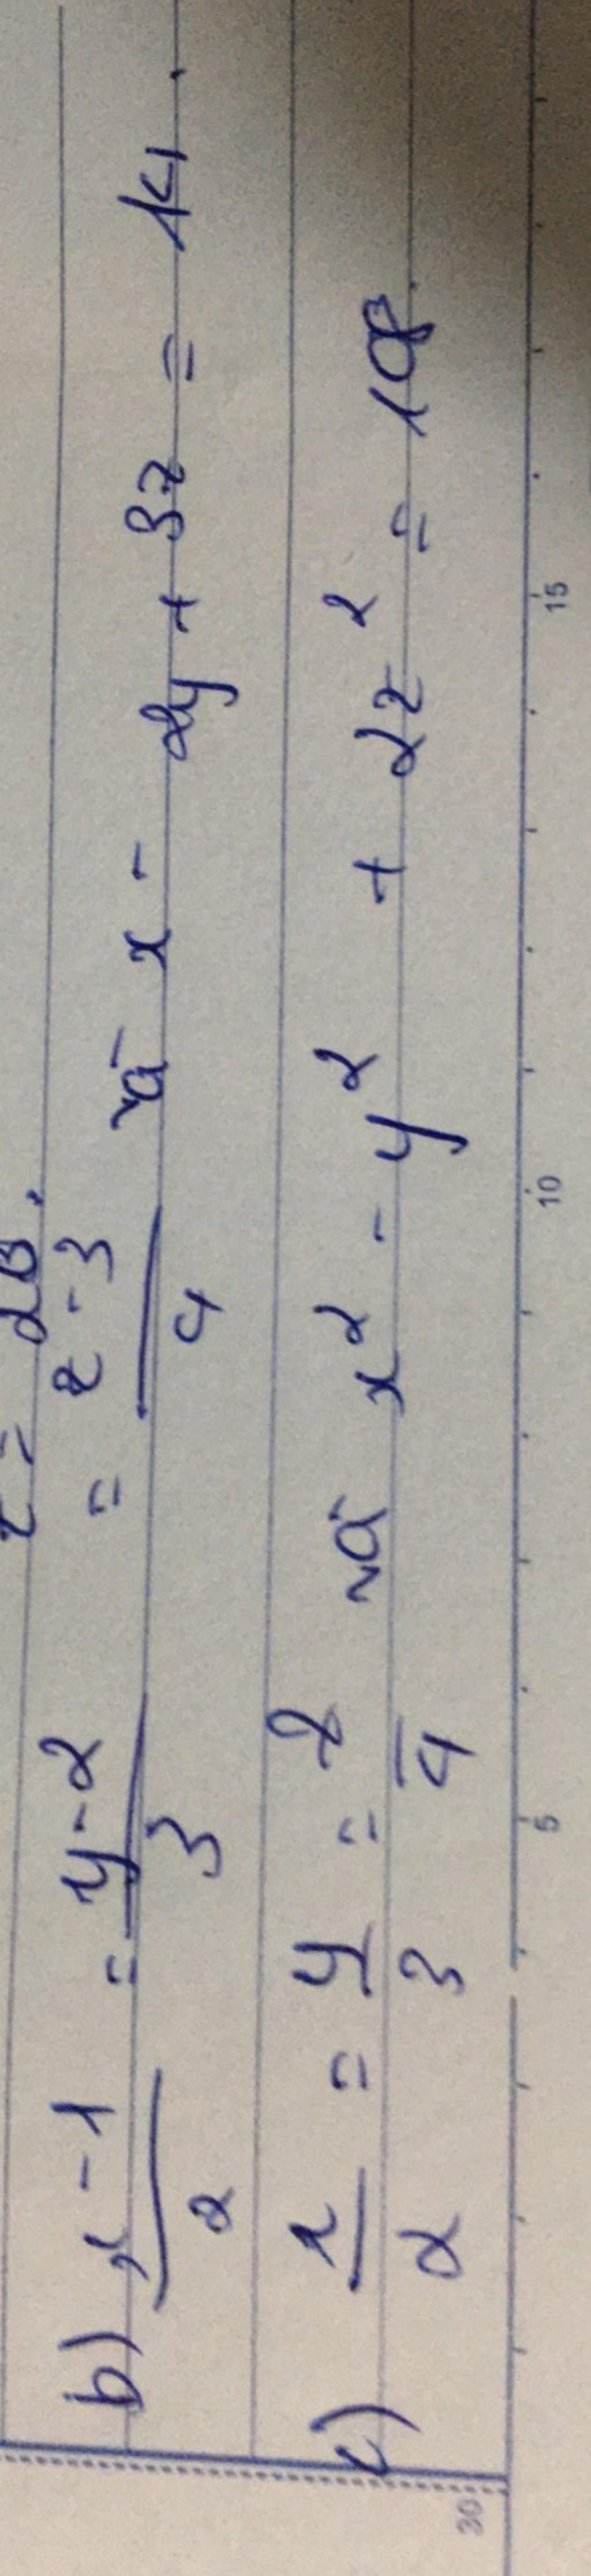 z = 28.
b) x - 1 / 2 = y - 2 / 3 = z - 3 / 4 và x - 2y + 3z = 14.
c) x / 2 = y / 3 = z / 4 và x² - y² + 2z² = 108.
5 10 15
30